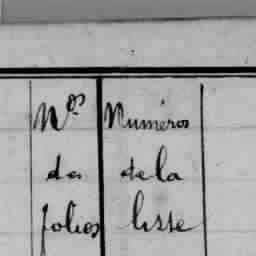 Nos
da
folios
Numéros
de la
lisse